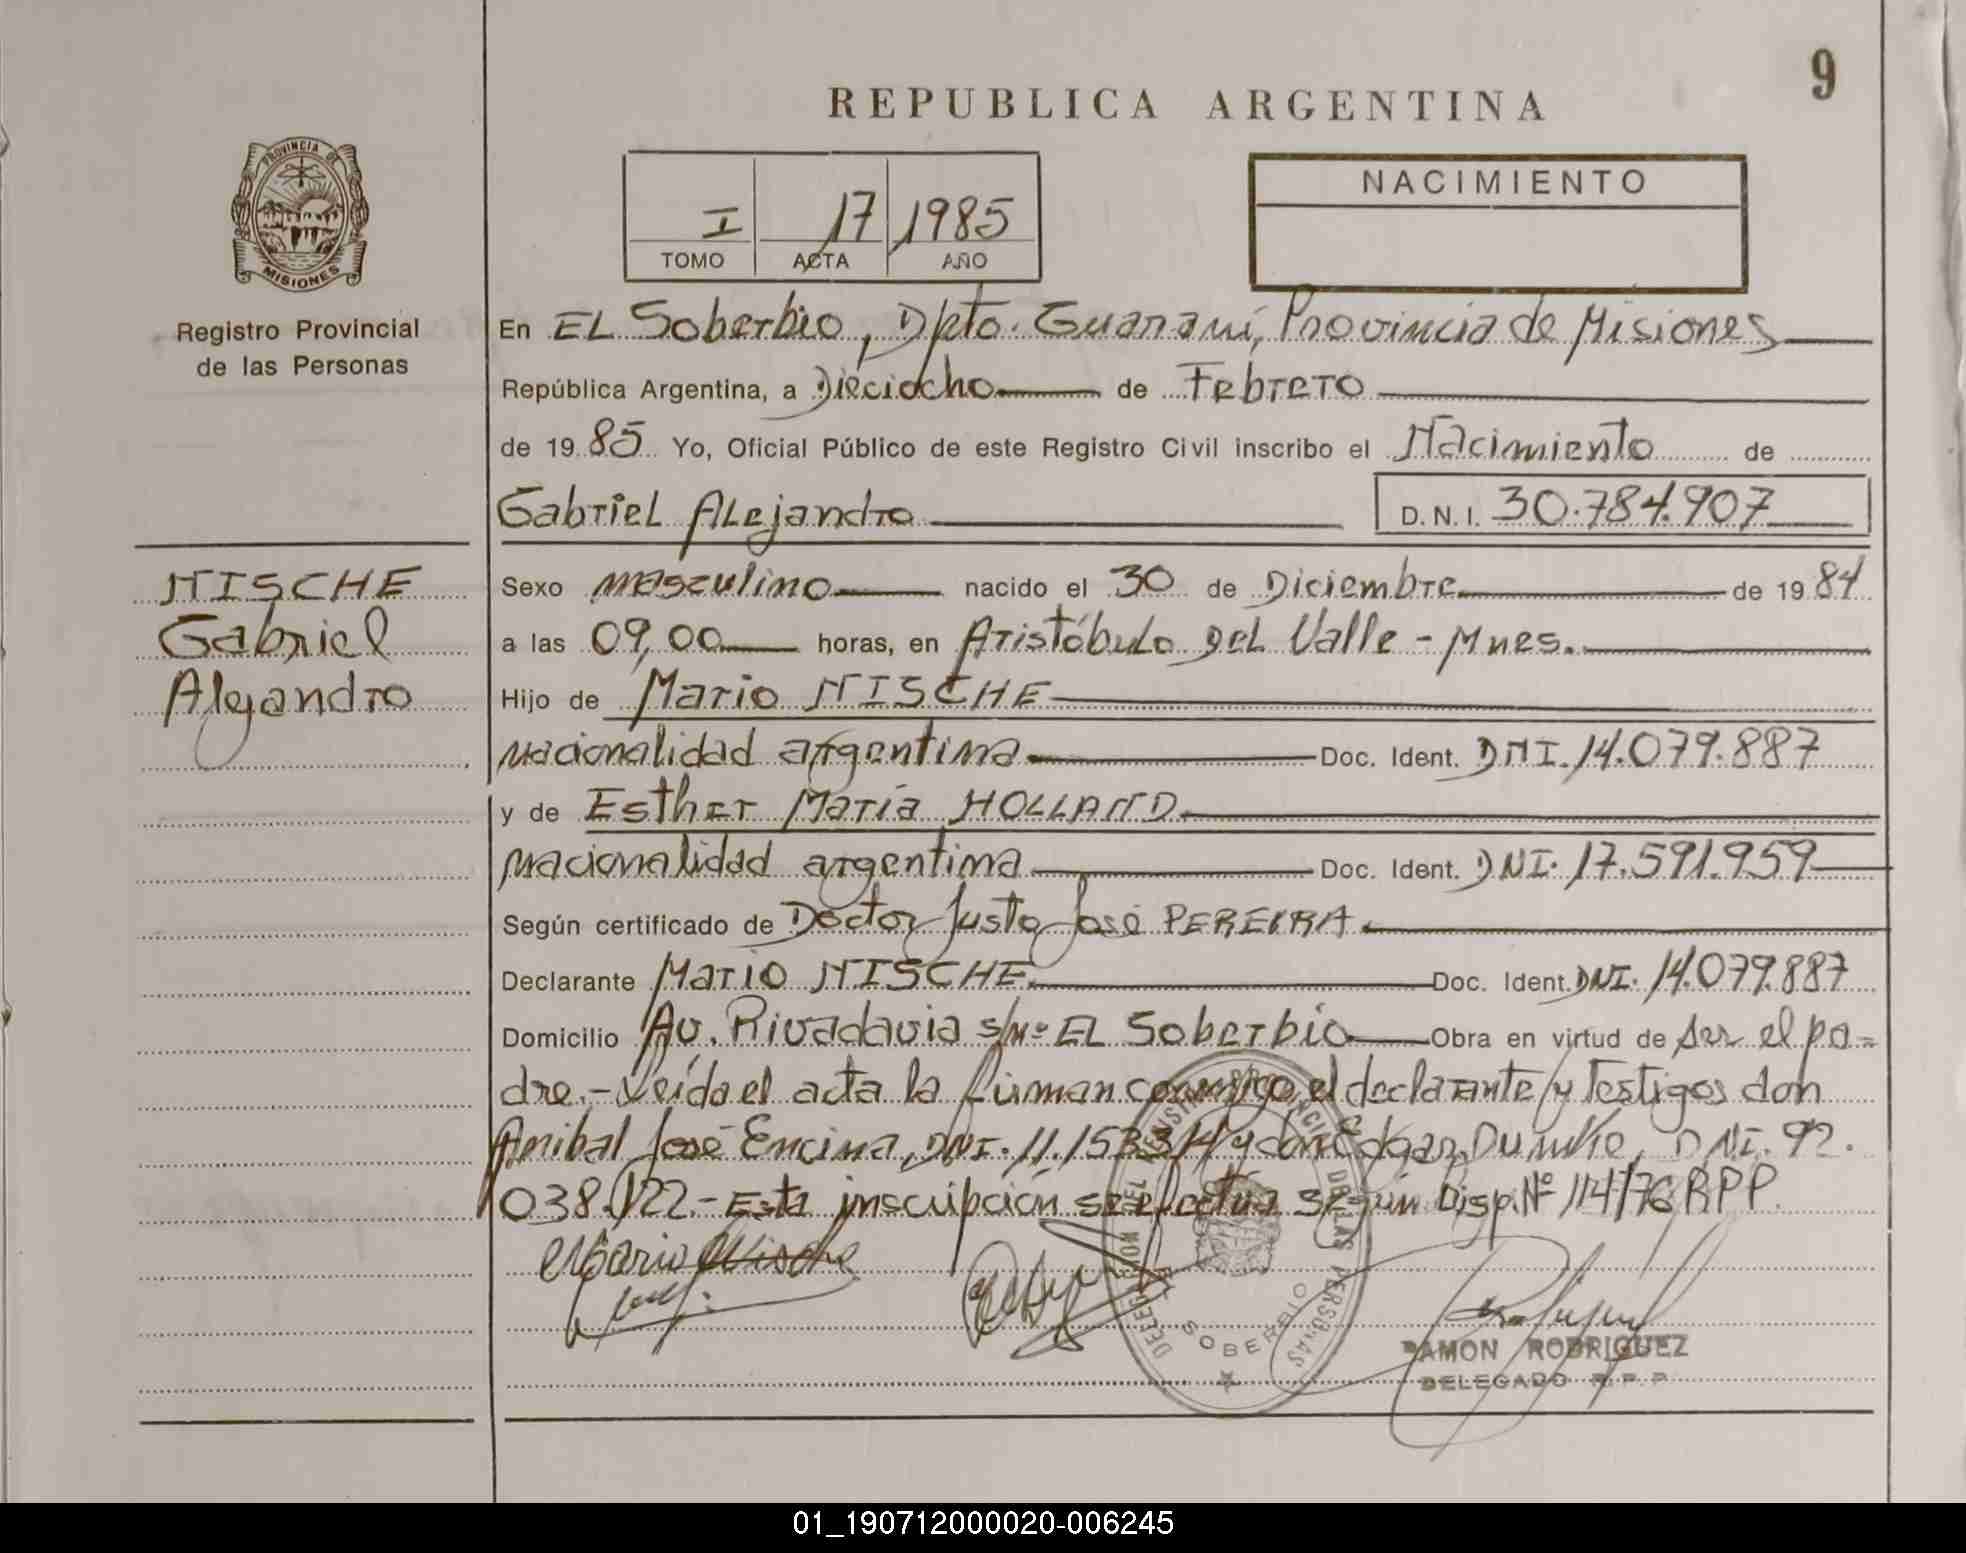 9
REPUBLICA ARGENTINA
PROVINCIA DE
MISIONES
Registro Provincial
de las Personas
I 17 1985
TOMO ACTA AÑO
NACIMIENTO
En EL Soberbio, Dpto. Guaraní, Provincia de Misiones
República Argentina, a Dieciocho de Febrero
de 19 85 Yo, Oficial Público de este Registro Civil inscribo el Nacimiento de
Gabriel Alejandro D.N.I. 30.784.907
NISCHE
Gabriel
Alejandro
Sexo masculino nacido el 30 de Diciembre de 19 84
a las 09,00 horas, en Aristóbulo Del Valle - Mnes.
Hijo de Mario NISCHE
nacionalidad argentina Doc. Ident. DNI. 14.079.887
y de Esther María HOLLAND
nacionalidad argentina Doc. Ident. DNI. 17.591.959
Según certificado de Doctor Justo José PEREYRA
Declarante Mario NISCHE Doc. Ident. DNI. 14.079.887
Domicilio Av. Rivadavia s/nº EL Soberbio Obra en virtud de ser el pa-
dre.- Leída el acta la firman conmigo el declarante y testigos don
Anibal José Encina, DNI. 11.153.314 y don Edgar Dumke, DNI. 92.
038.122.- Esta inscripción se efectúa según Disp. Nº 114/76 RPP.
Mario Nische
SOBERBIO
RAMON RODRIGUEZ
DELEGADO R.P.P.
01_190712000020-006245